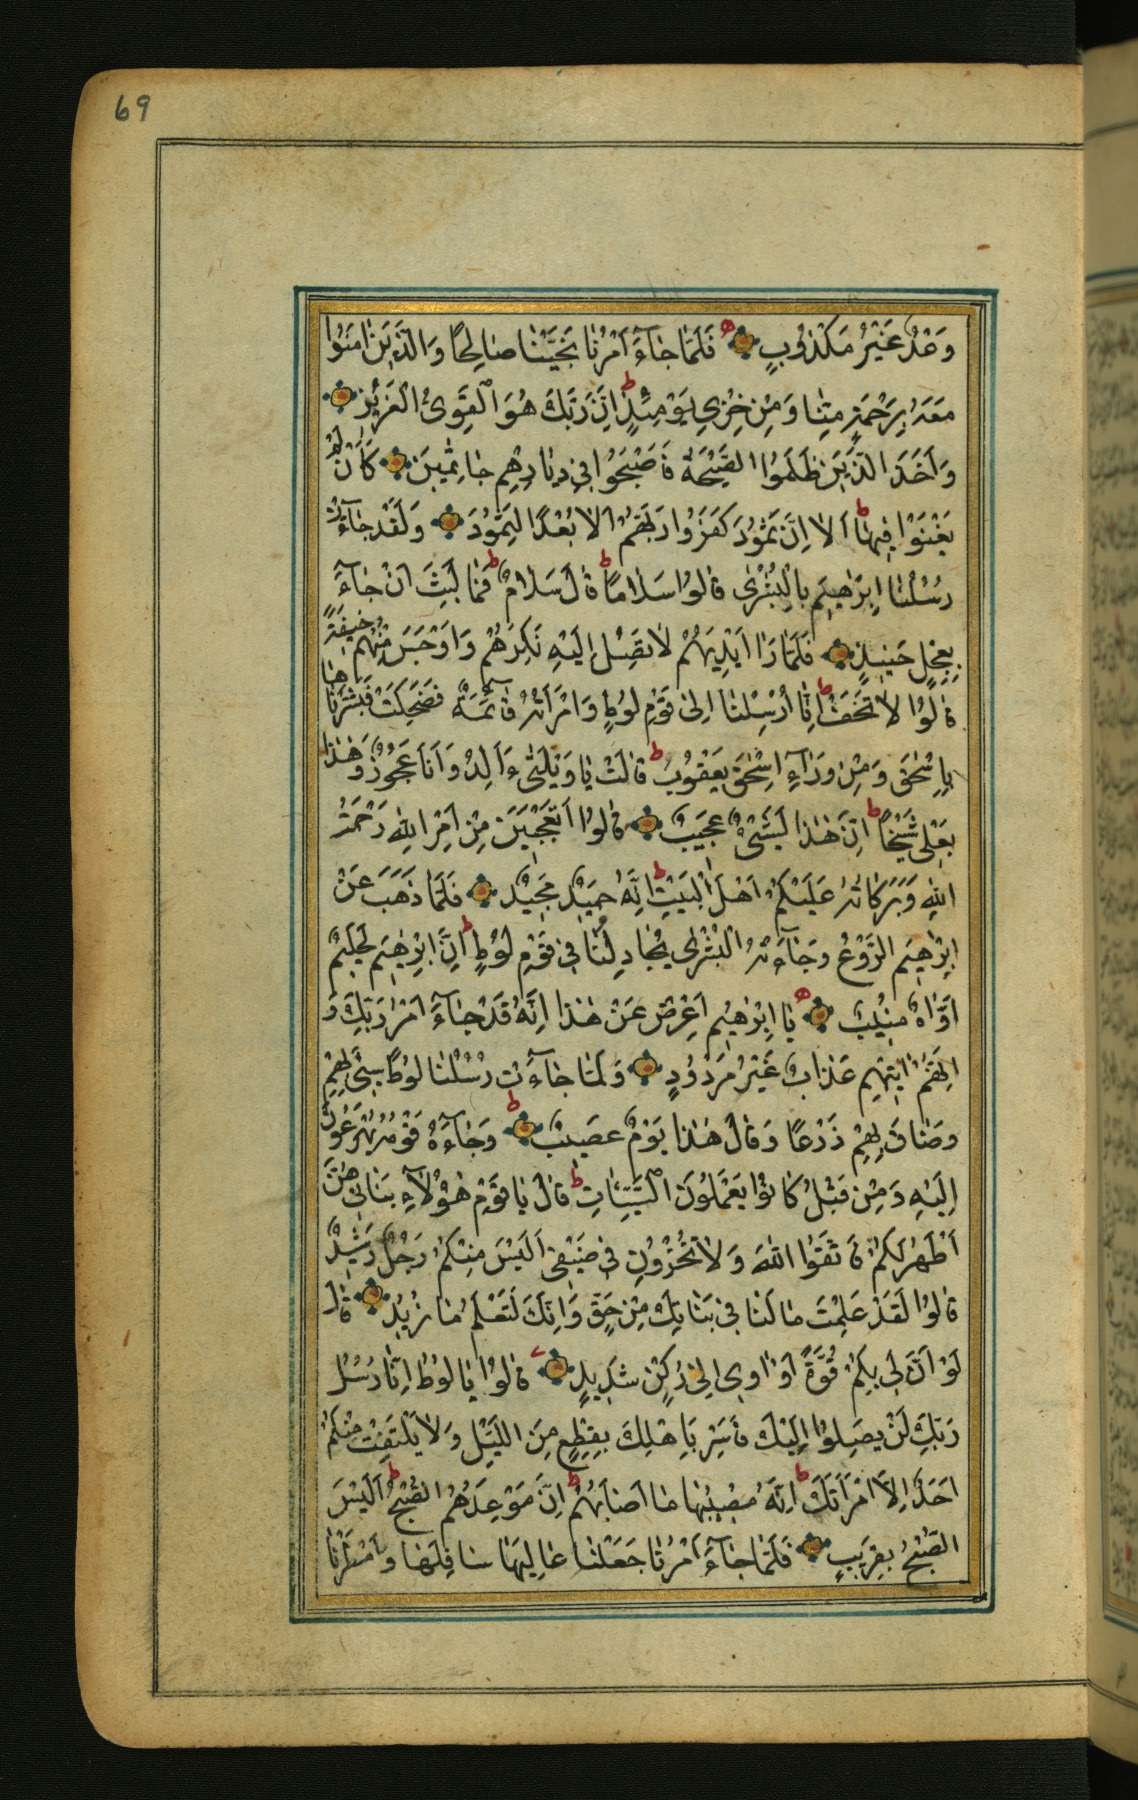 69
وَعْدٌ غَيْرُ مَكْذُوبٍ فَلَمَّا جَاءَ أَمْرُنَا نَجَّيْنَا صَالِحًا وَالَّذِينَ اٰمَنُوا
مَعَهُ بِرَحْمَةٍ مِنَّا وَمِنْ خِزْيِ يَوْمِئِذٍ إِنَّ رَبَّكَ هُوَ الْقَوِيُّ الْعَزِيزُ
وَأَخَذَ الَّذِينَ ظَلَمُوا الصَّيْحَةُ فَأَصْبَحُوا فِي دِيَارِهِمْ جَاثِمِينَ كَأَنْ لَمْ
يَغْنَوْا فِيهَا أَلَا إِنَّ ثَمُودَ كَفَرُوا رَبَّهُمْ أَلَا بُعْدًا لِثَمُودَ وَلَقَدْ جَاءَتْ
رُسُلُنَا إِبْرٰهِيمَ بِالْبُشْرٰى قَالُوا سَلَامًا قَالَ سَلَامٌ فَمَا لَبِثَ أَنْ جَاءَ
بِعِجْلٍ حَنِيذٍ فَلَمَّا رَاٰ أَيْدِيَهُمْ لَا تَصِلُ إِلَيْهِ نَكِرَهُمْ وَأَوْجَسَ مِنْهُمْ خِيفَةً
قَالُوا لَا تَخَفْ إِنَّا أُرْسِلْنَا إِلَىٰ قَوْمِ لُوطٍ وَامْرَأَتُهُ قَائِمَةٌ فَضَحِكَتْ فَبَشَّرْنَاهَا
بِإِسْحٰقَ وَمِنْ وَرَاءِ إِسْحٰقَ يَعْقُوبَ قَالَتْ يَا وَيْلَتٰى ءَأَلِدُ وَأَنَا عَجُوزٌ وَهٰذَا
بَعْلِي شَيْخًا إِنَّ هٰذَا لَشَيْءٌ عَجِيبٌ قَالُوا أَتَعْجَبِينَ مِنْ أَمْرِ اللهِ رَحْمَتُ
اللهِ وَبَرَكَاتُهُ عَلَيْكُمْ أَهْلَ الْبَيْتِ إِنَّهُ حَمِيدٌ مَجِيدٌ فَلَمَّا ذَهَبَ عَنْ
إِبْرٰهِيمَ الرَّوْعُ وَجَاءَتْهُ الْبُشْرٰى يُجَادِلُنَا فِي قَوْمِ لُوطٍ إِنَّ إِبْرٰهِيمَ لَحَلِيمٌ
أَوَّاهٌ مُنِيبٌ يَا إِبْرٰهِيمُ أَعْرِضْ عَنْ هٰذَا إِنَّهُ قَدْ جَاءَ أَمْرُ رَبِّكَ وَ
إِنَّهُمْ اٰتِيهِمْ عَذَابٌ غَيْرُ مَرْدُودٍ وَلَمَّا جَاءَتْ رُسُلُنَا لُوطًا سِيءَ بِهِمْ
وَضَاقَ بِهِمْ ذَرْعًا وَقَالَ هٰذَا يَوْمٌ عَصِيبٌ وَجَاءَهُ قَوْمُهُ يُهْرَعُونَ
إِلَيْهِ وَمِنْ قَبْلُ كَانُوا يَعْمَلُونَ السَّيِّئَاتِ قَالَ يَا قَوْمِ هٰؤُلَاءِ بَنَاتِي هُنَّ
أَطْهَرُ لَكُمْ فَاتَّقُوا اللهَ وَلَا تُخْزُونِ فِي ضَيْفِي أَلَيْسَ مِنْكُمْ رَجُلٌ رَشِيدٌ
قَالُوا لَقَدْ عَلِمْتَ مَا لَنَا فِي بَنَاتِكَ مِنْ حَقٍّ وَإِنَّكَ لَتَعْلَمُ مَا نُرِيدُ قَالَ
لَوْ أَنَّ لِي بِكُمْ قُوَّةً أَوْ اٰوِي إِلَىٰ رُكْنٍ شَدِيدٍ قَالُوا يَا لُوطُ إِنَّا رُسُلُ
رَبِّكَ لَنْ يَصِلُوا إِلَيْكَ فَأَسْرِ بِأَهْلِكَ بِقِطْعٍ مِنَ اللَّيْلِ وَلَا يَلْتَفِتْ مِنْكُمْ
أَحَدٌ إِلَّا امْرَأَتَكَ إِنَّهُ مُصِيبُهَا مَا أَصَابَهُمْ إِنَّ مَوْعِدَهُمُ الصُّبْحُ أَلَيْسَ
الصُّبْحُ بِقَرِيبٍ فَلَمَّا جَاءَ أَمْرُنَا جَعَلْنَا عَالِيَهَا سَافِلَهَا وَأَمْطَرْنَا